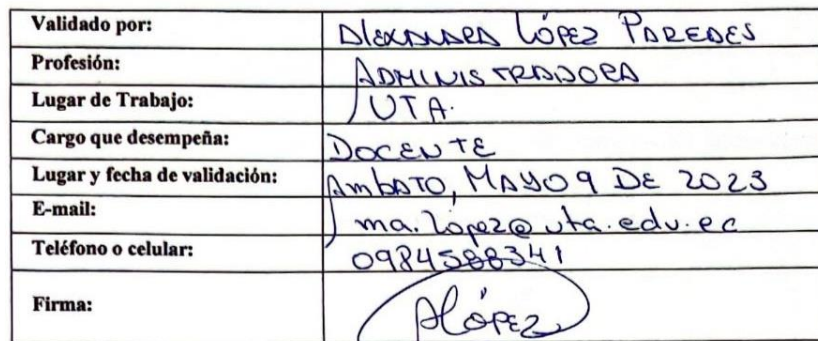 Validado por: Alexandra López Paredes
Profesión: Administradora
Lugar de Trabajo: UTA.
Cargo que desempeña: Docente
Lugar y fecha de validación: Ambato, Mayo 9 de 2023
E-mail: ma.lopez@uta.edu.ec
Teléfono o celular: 0984588341
Firma: ALópez